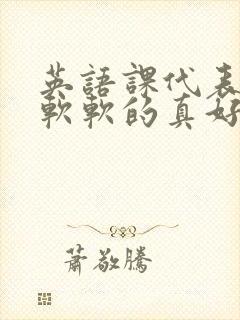 英語課代表
軟軟的真好
蕭敬騰